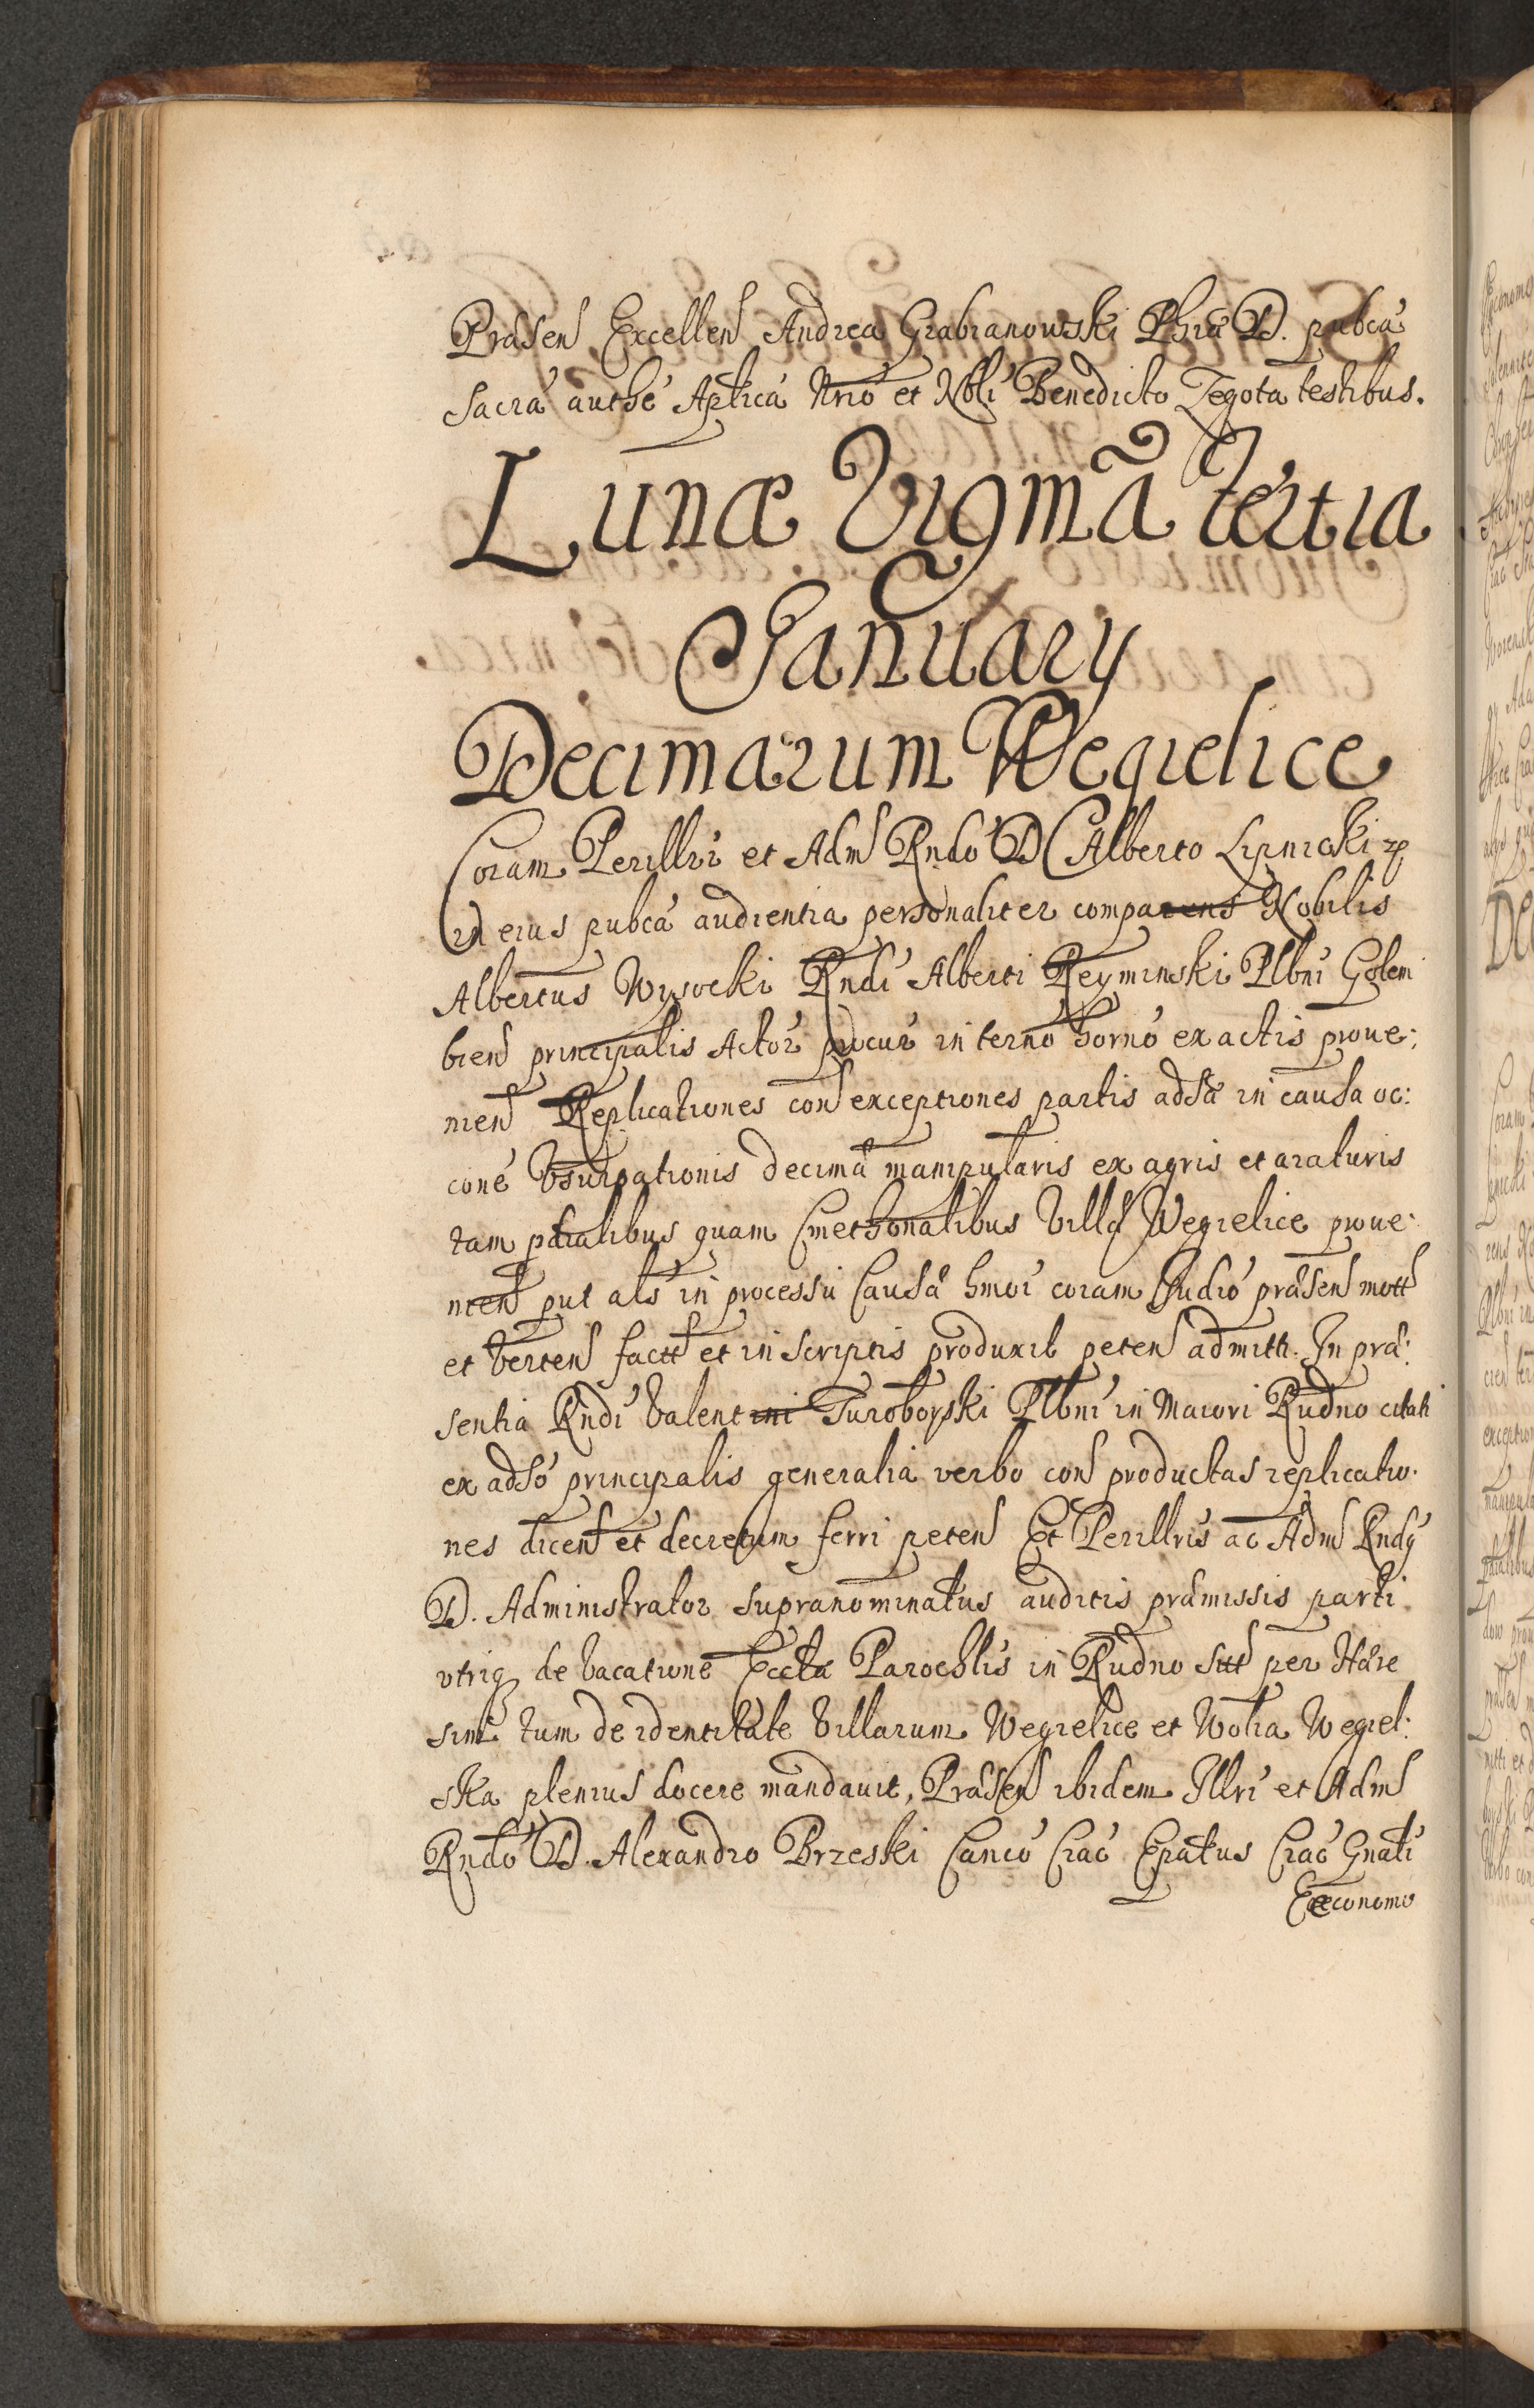 Præsen Excellen Andrea Grabianowski Phiæ D. pubca
sacra authe Aplica Nrio et Nbli Benedicto Zegota testibus.
Lunæ Vigmã tertia
January
Decimarum Wegielice
Coram Perillri et Adm Rndo D Alberto Lipnicki rp
in eius pubca audientia personaliter comparens Nobilis
Albertus Wysocki Rndi Alberti Reyminski Plbni Golem
bien principalis Actor procur in terno horno ex actis proue:
nien Replicationes con exceptiones partis adsæ in causa oc:
cone Vsurpationis decimæ manipularis ex agris et araturis
tam pdialibus quam Cmethonalibus Villæ Wegielice proue:
nien put als in processu Causæ hmoi coram Judio præsen mott
et verten factt et in scriptis produxit peten admitti. In præ:
sentia Rndi Valentini Turoboyski Plbni in Maiori Rudno citati
ex adso principalis generalia verbo con productas replicatio:
nes dicen et decretum ferri peten Et Perillris ac Adm Rndy
D. Administrator supranominatus auditis præmissis parti
vtriq de vacatione Eccla Parochlis in Rudno sttt per Hære
sim tum de identitate Villarum Wegielice et Wolia Wegiel:
ska plenius docere mandauit, Præsen ibidem Illri et Adm
Rndo D. Alexandro Brzeski Canco Crac Epatus Crac Gnali
Oeconomo